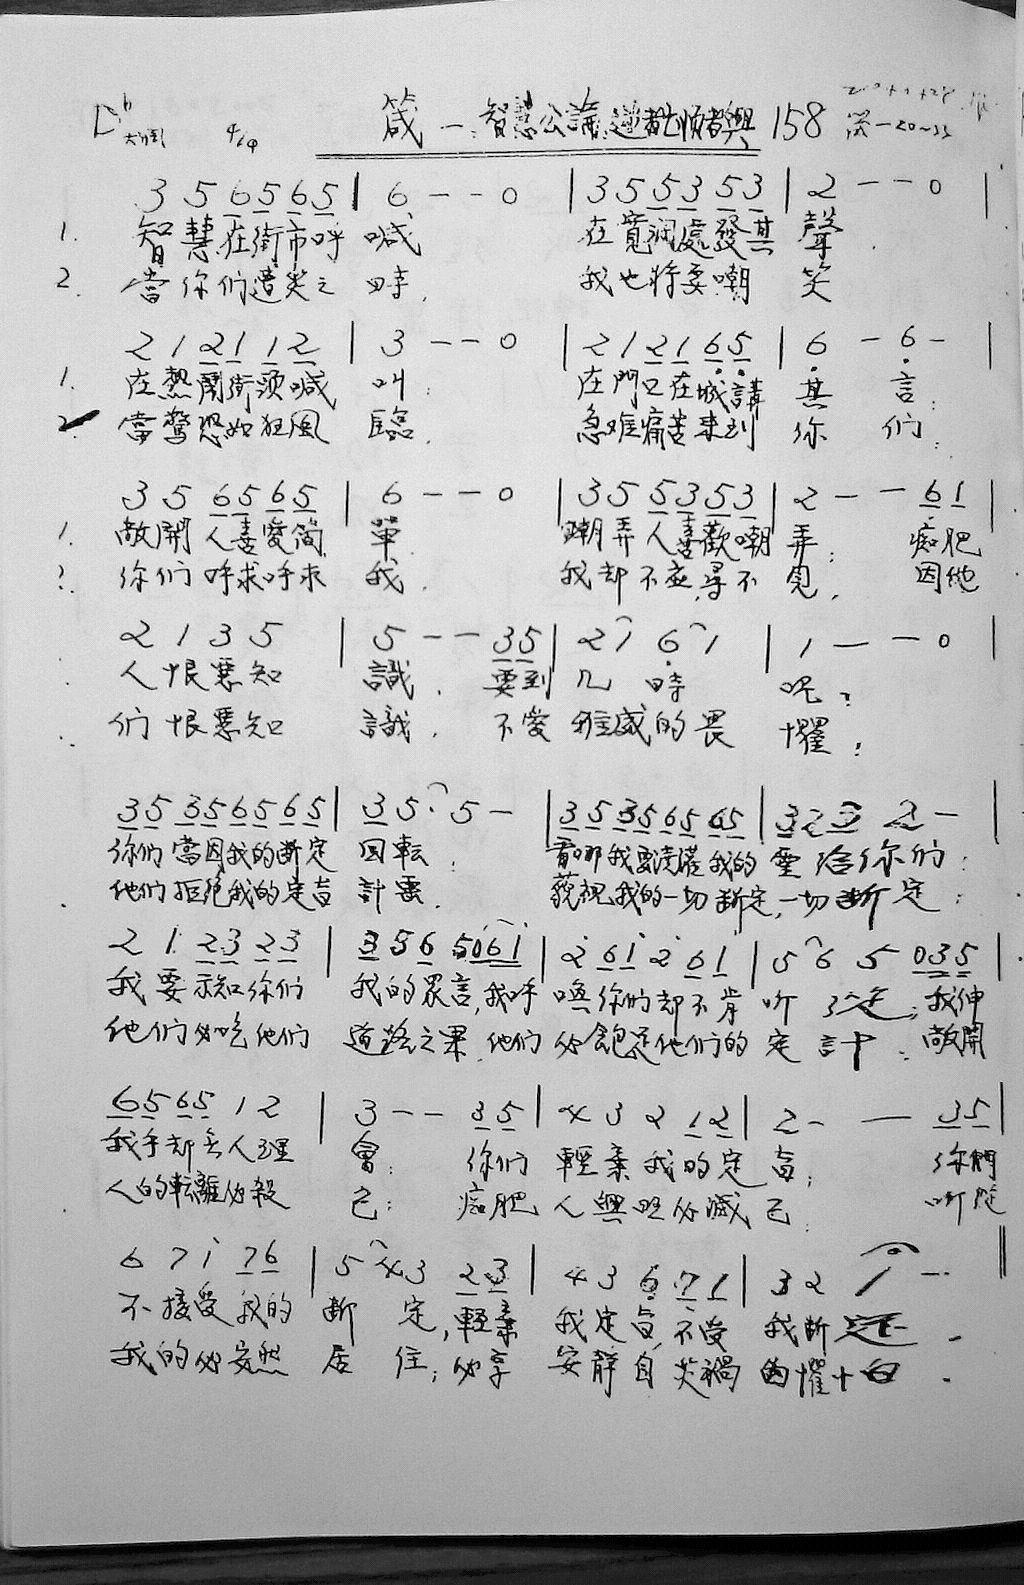 箴一 智慧公講 逆者亡順者興 158 箴一20~33
D♭大調 4/4
3 5 6 5 6 5 | 6 - - 0 | 3 5 5 3 5 3 | 2 - - 0 |
1. 智慧在街市呼 喊 在寬濶處發其 聲.
2. 當你們遭災之 時. 我也將要嘲 笑
2 1 2 1 1 2 | 3 - - 0 | 2 1 2 1 6 5 | 6 - 6 - |
1. 在熱鬧街頭喊 叫: 在門口在城講 其 言:
2. 當驚恐如狂風 臨. 急难痛苦来到 你 们:
3 5 6 5 6 5 | 6 - - 0 | 3 5 5 3 5 3 | 2 - - 6 1 |
1. 敞開 人喜愛简 單. 嘲弄人喜歡嘲 弄; 痴肥
2. 你们 呼求呼求 我. 我却不应,尋不 見. 因他
2 1 3 5 | 5 - - 3 5 | 2 1 6 1 | 1 - - 0 |
人恨惡知 識. 要到 几 時 呢?
们恨惡知 識. 不愛 雅威的畏 懼;
3 5 3 5 6 5 6 5 | 3 5 · 5 - | 3 5 3 5 6 5 6 5 | 3 2 3 2 - |
你们當因我的断定 回転. 看哪我要澆灌我的 靈 给你们:
他们拒絕我的定旨 計畫. 藐視我的一切断定,一切断定:
2 1 2 3 2 3 | 3 5 6 5 0 6 1 | 2 6 1 2 6 1 | 5 6 5 0 3 5 |
我要示知你们 我的眾言,我呼 喚你们却不肯 听 从; 我伸
他们必吃他们 道路之果.他们 必飽足他们的 定 計. 敞開
6 5 6 5 1 2 | 3 - - 3 5 | 4 3 2 1 2 | 2 - - 3 5 |
我手却无人理 會; 你们 輕棄我的定 旨; 你們
人的転離必殺 己: 痴肥 人興旺必滅 己. 听從
6 7 1 7 6 | 5 4 3 2 3 | 4 3 6 7 1 | 3 2 1 - ‖
不接受我的 断 定,輕棄 我定旨,不受 我断定.
我的必安然 居 住;必享 安靜自災禍 的懼